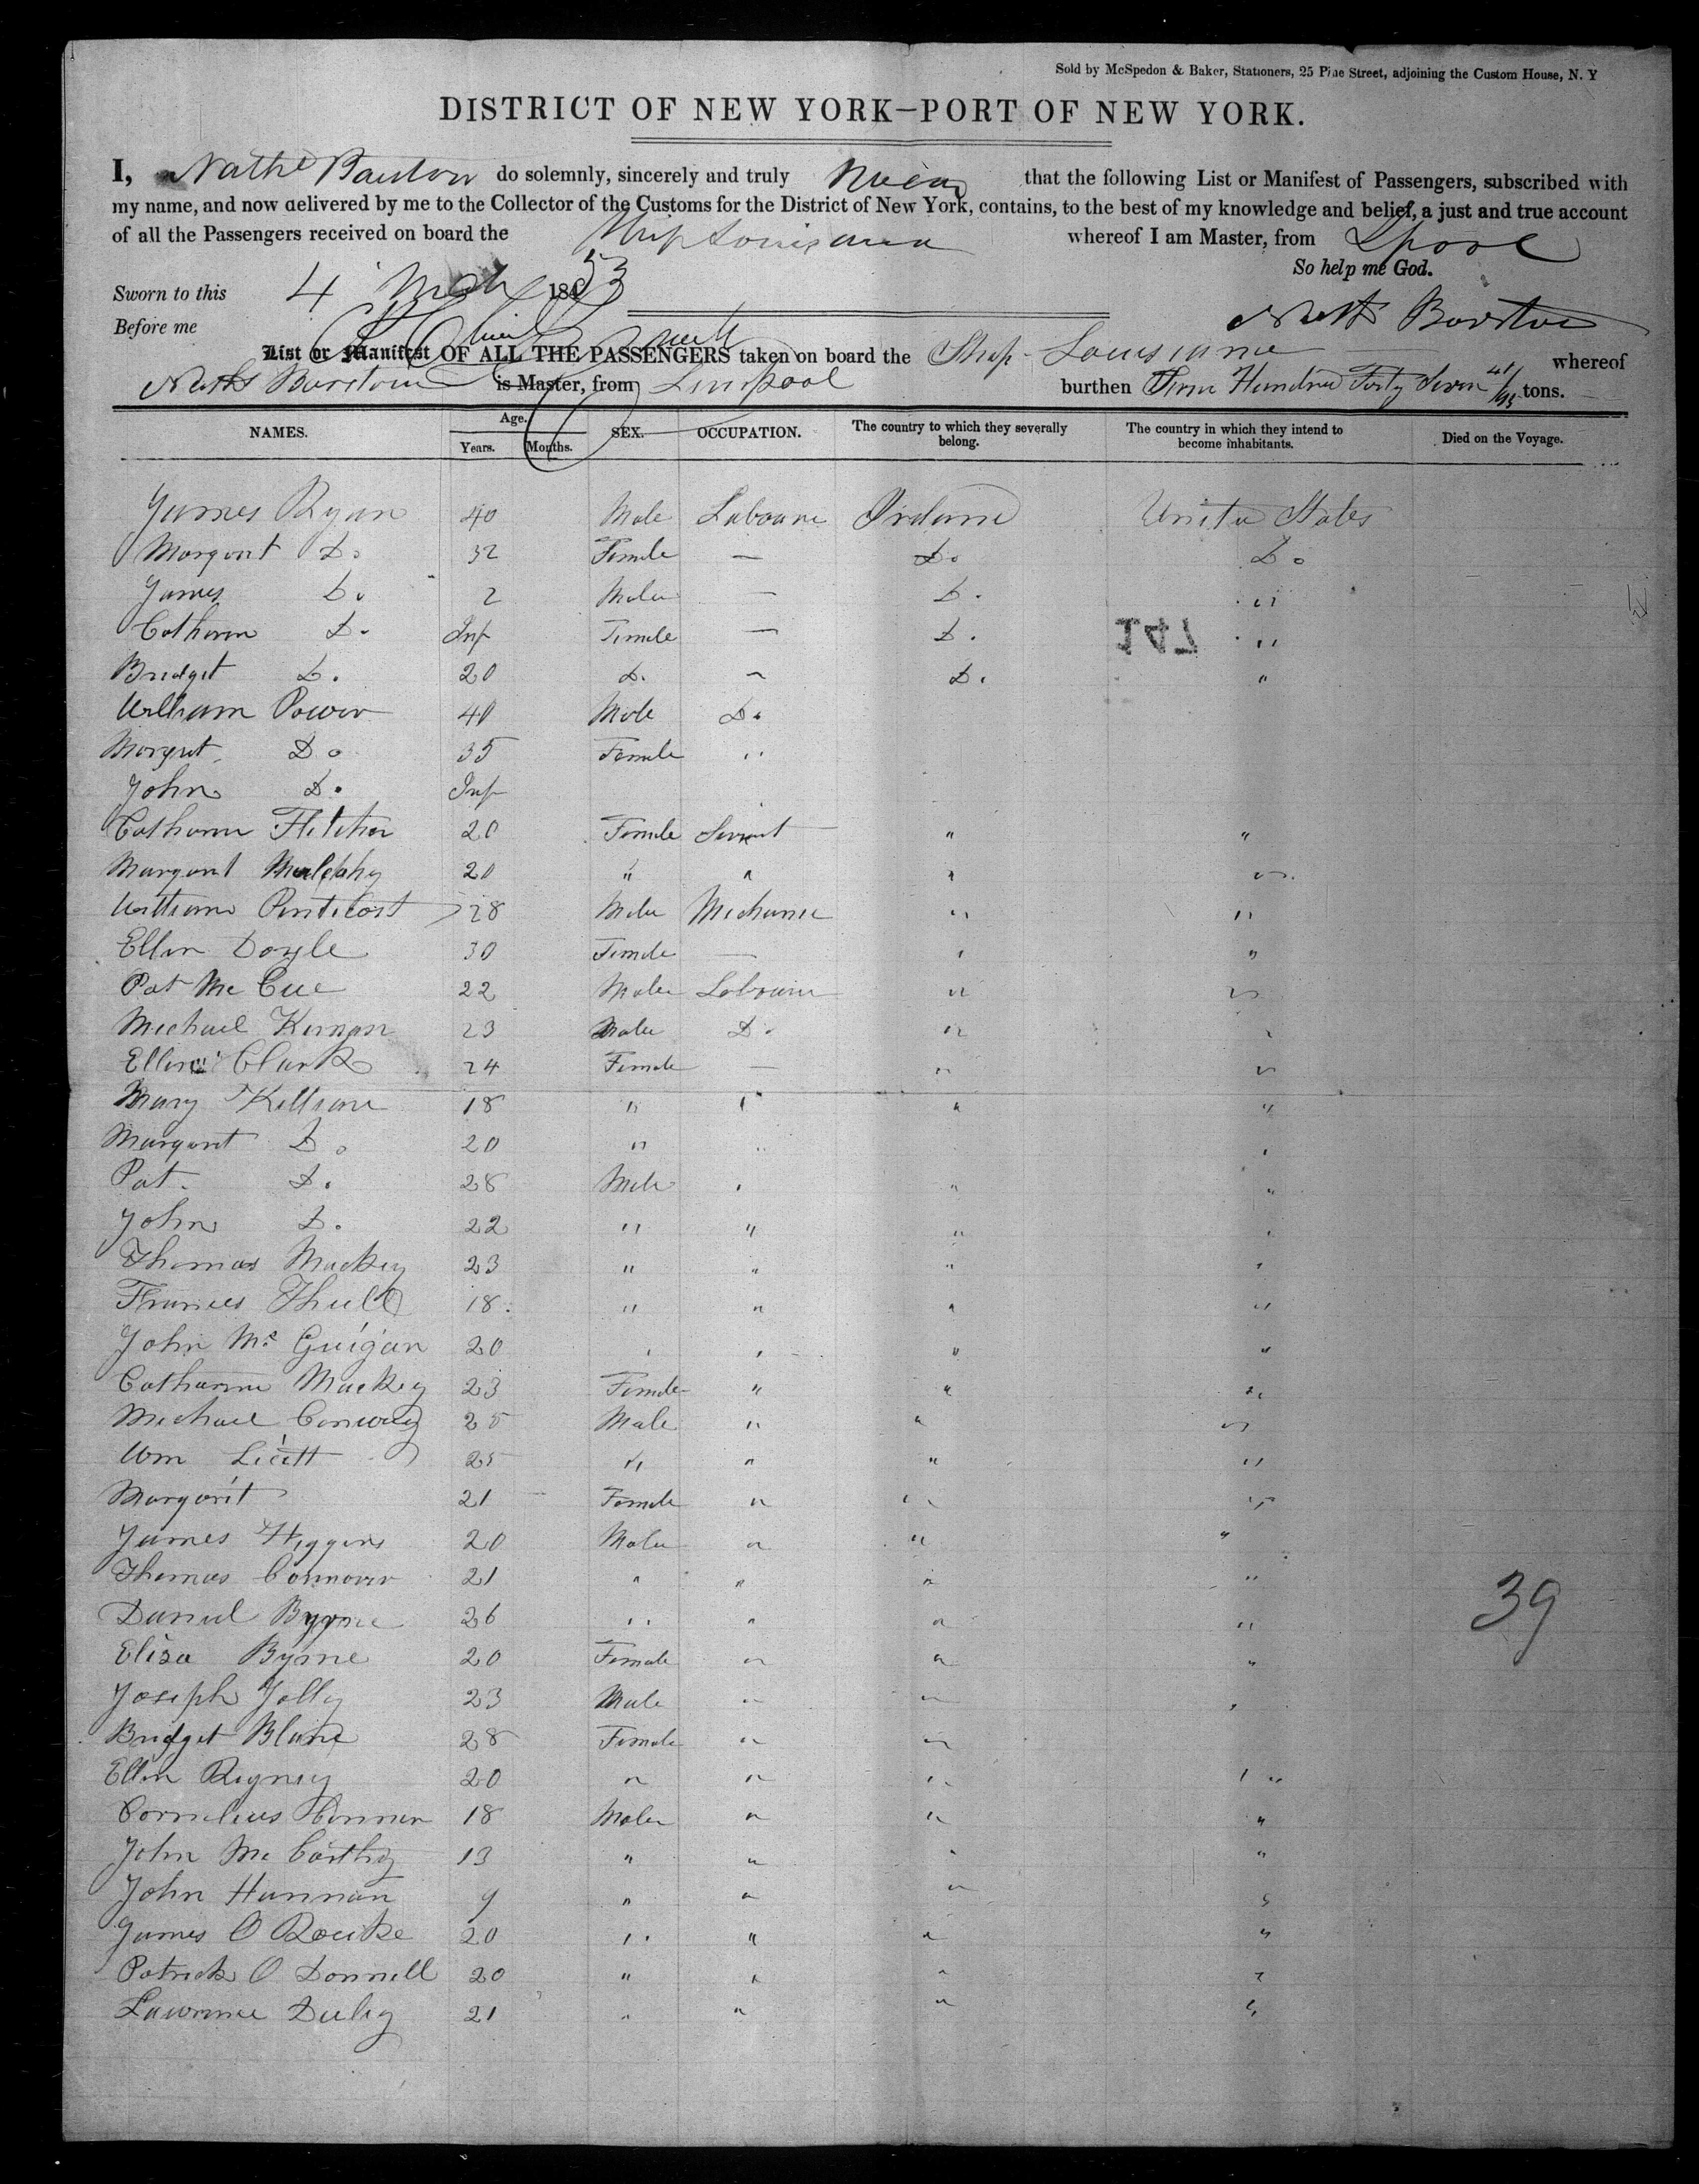 Sold by McSpedon & Baker, Stationers, 25 Pine Street, adjoining the Custom House, N. Y
DISTRICT OF NEW YORK–PORT OF NEW YORK.
I, Nathl do solemnly, sincerely and truly that the following List or Manifest of Passengers, subscribed with
my name, and now delivered by me to the Collector of the Customs for the District of New York, contains, to the best of my knowledge and belief, a just and true account
of all the Passengers received on board the Ship Louisiana whereof I am Master, from Lpool
So help me God.
Sworn to this 4 Mch 1853
Before me
List or Manifest OF ALL THE PASSENGERS taken on board the Ship Louisiana whereof
is Master, from Liverpool burthen Hundred Forty Seven 41/95 tons.
NAMES. Age. Years. Months. SEX. OCCUPATION. The country to which they severally belong. The country in which they intend to become inhabitants. Died on the Voyage.
James Ryan 40 Male Laboure Ireland United States
Margart Do 32 Female — Do Do
James Do 2 Male — D. "
Catharin D. Inf Female — D. 147 "
Bridget D. 20 D. ~ D. "
William Power 40 Male Do
Margrt Do 35 Female "
John D. Inf
Catharin Fletcher 20 Female Servant " "
Margart Mulcahy 20 " " " "
William Penticost 28 Male Mechanic " "
Ellen Doyle 30 Female — " "
Pat Mc Cue 22 Male Labourer " "
Michael Kernan 23 Male D. " "
Ellen Clark 24 Female — " "
Mary Killiane 18 " " " "
Margart Do 20 " " "
Pat. D. 28 Male " " "
John D. 22 " " " "
Thomas Mackey 23 " " " "
Frances 18 " " " "
John Mc Guigan 20 " " " "
Catharine Mackey 23 Female " " "
Michael Conway 25 Male " " "
Wm 25 " " " "
Margarit 21 Female " " "
James Higgins 20 Male " " "
Thomas 21 " " " "
Daniel Byrne 26 " " " " 39
Eliza Byrne 20 Female " " "
Joseph Jolly 23 Male " " "
Bridget Blane 28 Female " "
Ellen Rigney 20 " " " "
Cornelius Connor 18 Male " " "
John Mc Carthy 13 " " " "
John Hannan 9 " " " "
James O Rourke 20 " " " "
Patrick O Donnell 20 " " " "
Lawrence 21 " " " "